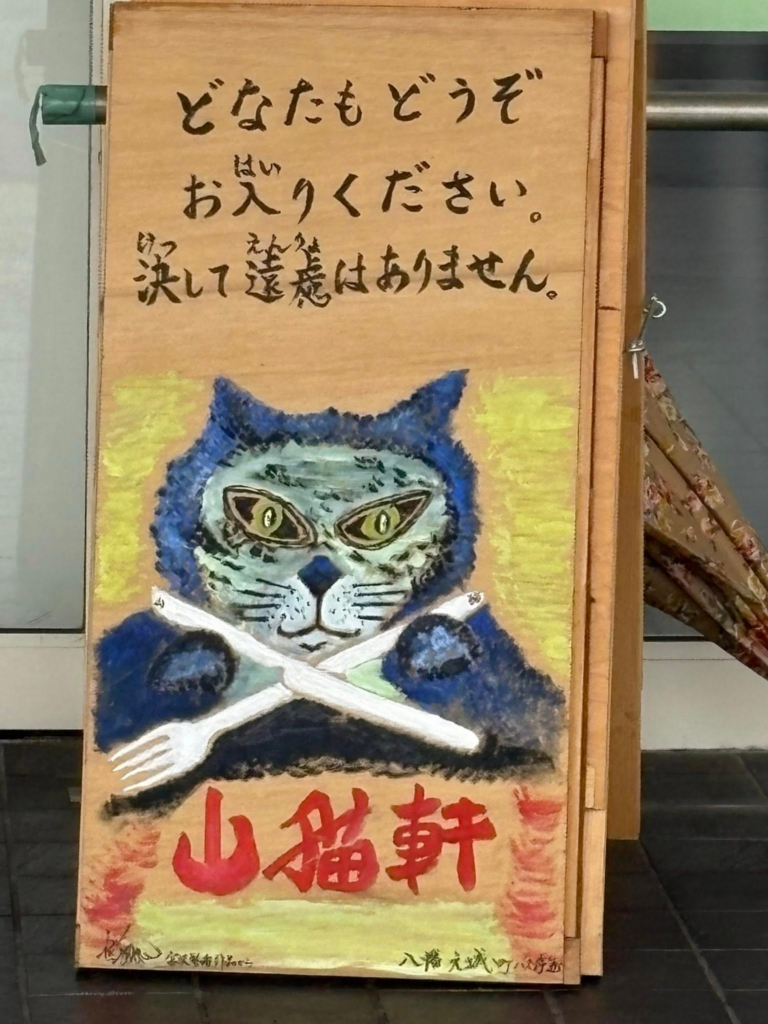 どなたもどうぞ
お入りください。
はい
決して遠慮はありません。
けつ えんりよ
山猫軒
宮沢賢治作品から
八幡元城町